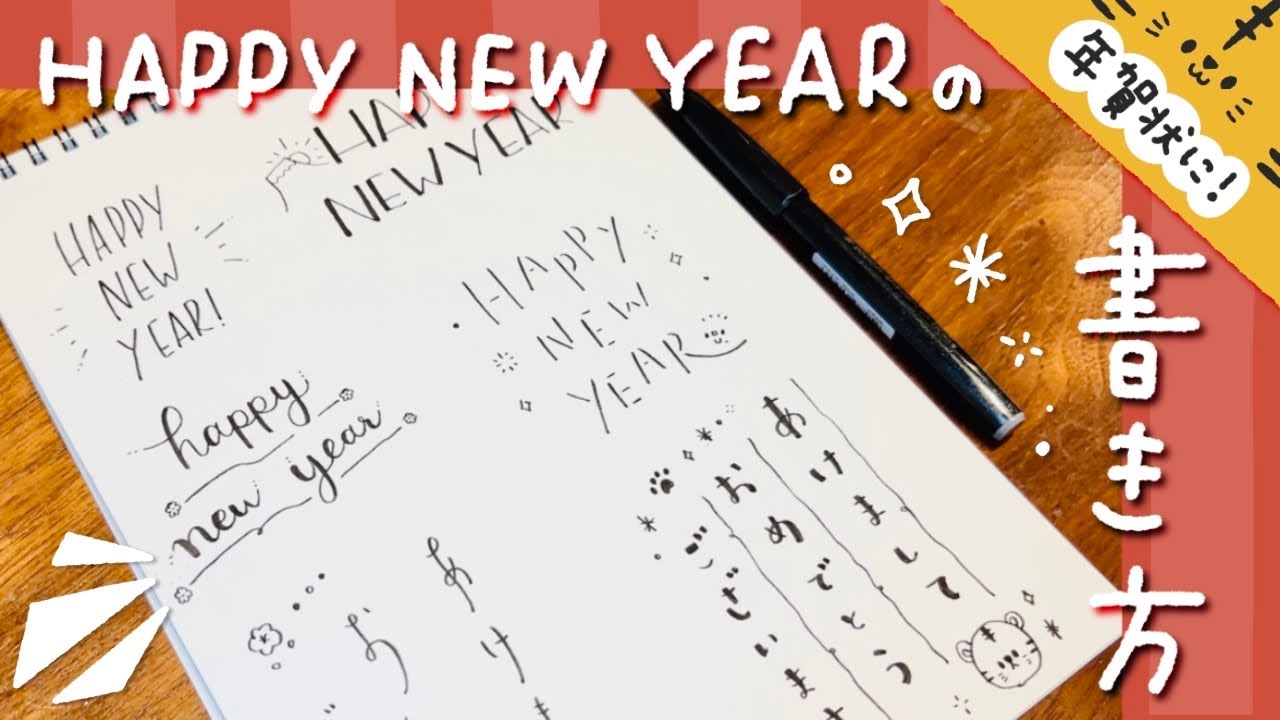 HAPPY NEW YEARの
書き方
年賀状に!
HAP
NEW YEAR
HAPPY
NEW
YEAR!
HAppy
NEW
YEAR
happy
new year
あけまして
おめでとう
ございます
あけ
お